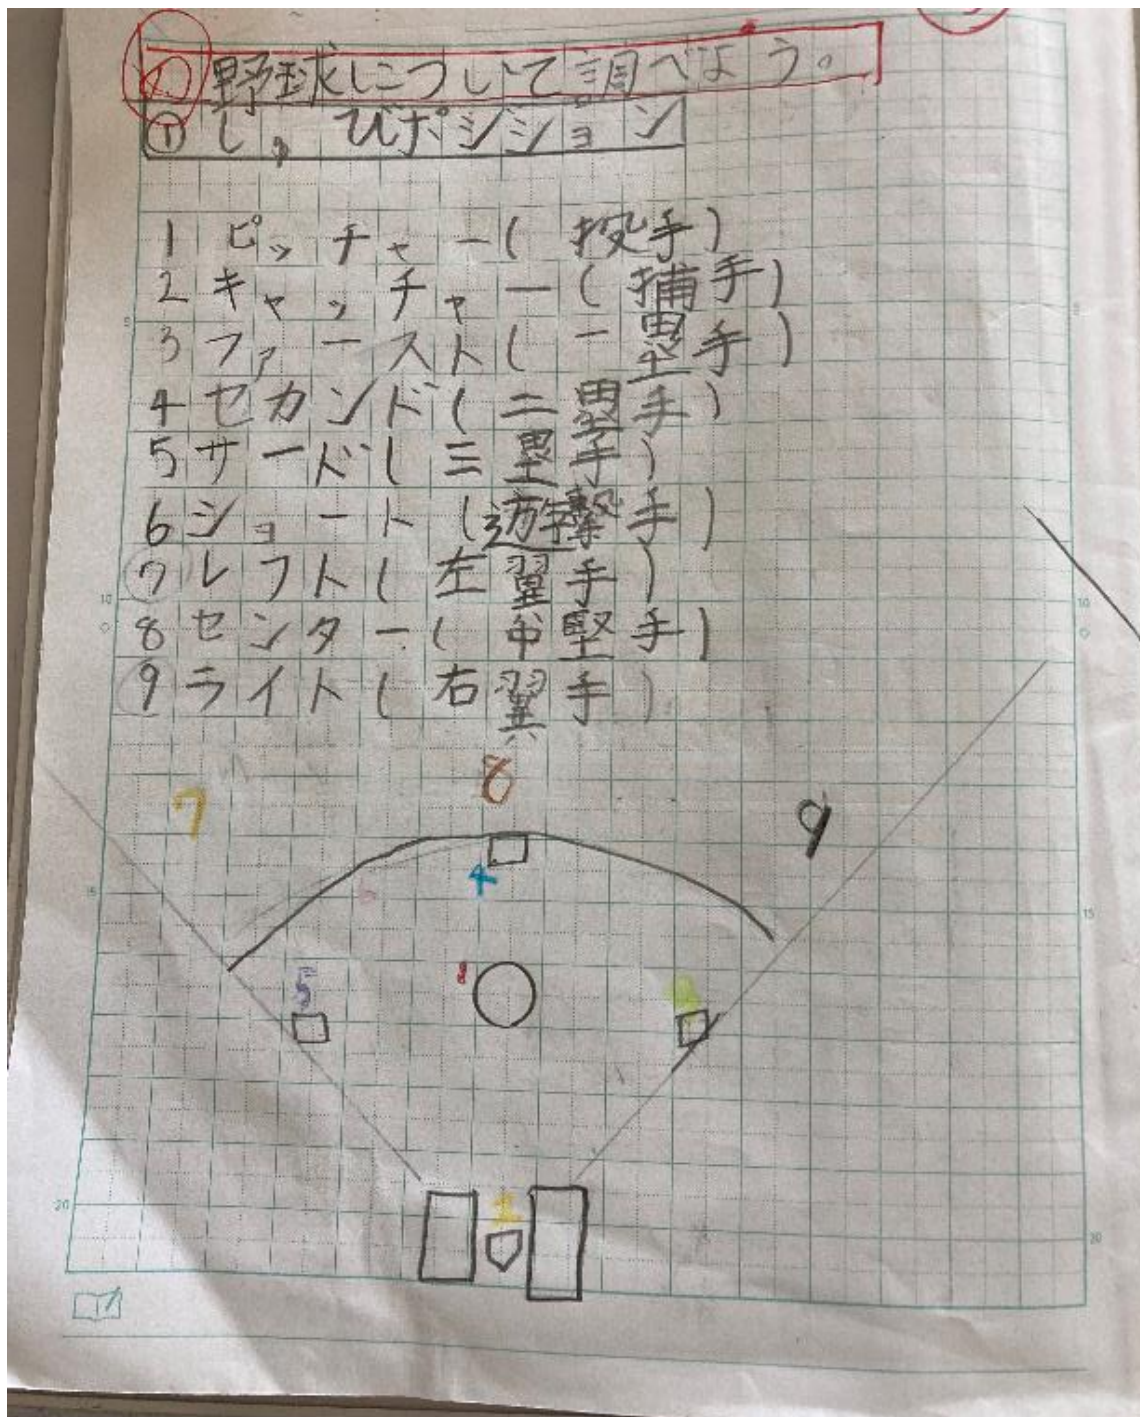 め 野球について調べよう。
① しゅびポジション
1 ピッチャー(投手)
2 キャッチャー(捕手)
3 ファースト(一塁手)
4 セカンド(二塁手)
5 サード(三塁手)
6 ショート(遊撃手)
7 レフト(左翼手)
8 センター(中堅手)
9 ライト(右翼手)
8
7 9
4
5 1
5
10 10
15 15
20 20